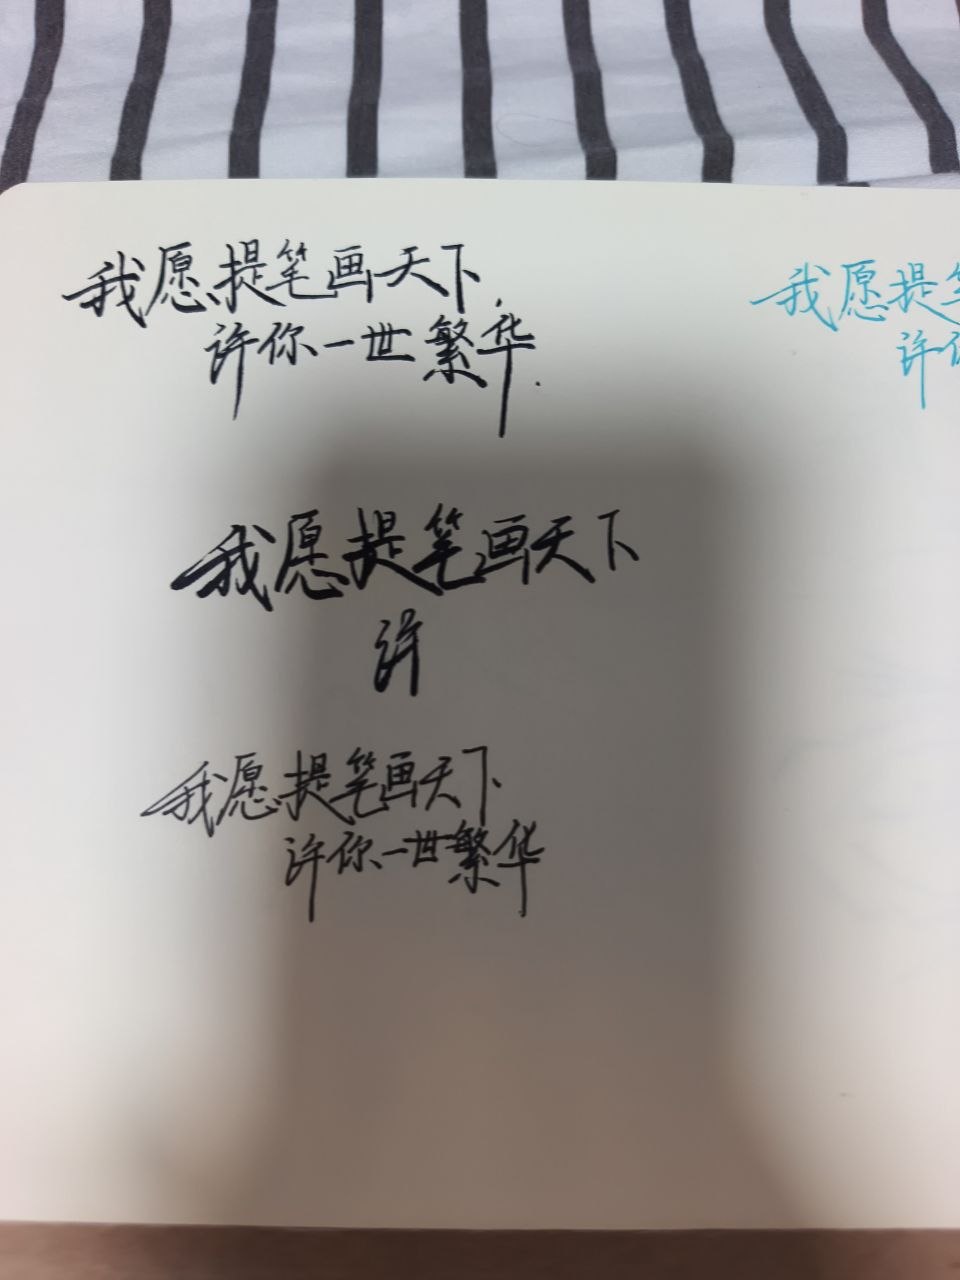 我愿提笔画天下,
许你一世繁华.
我愿提
许
我愿提笔画天下
许
我愿提笔画天下
许你一世繁华